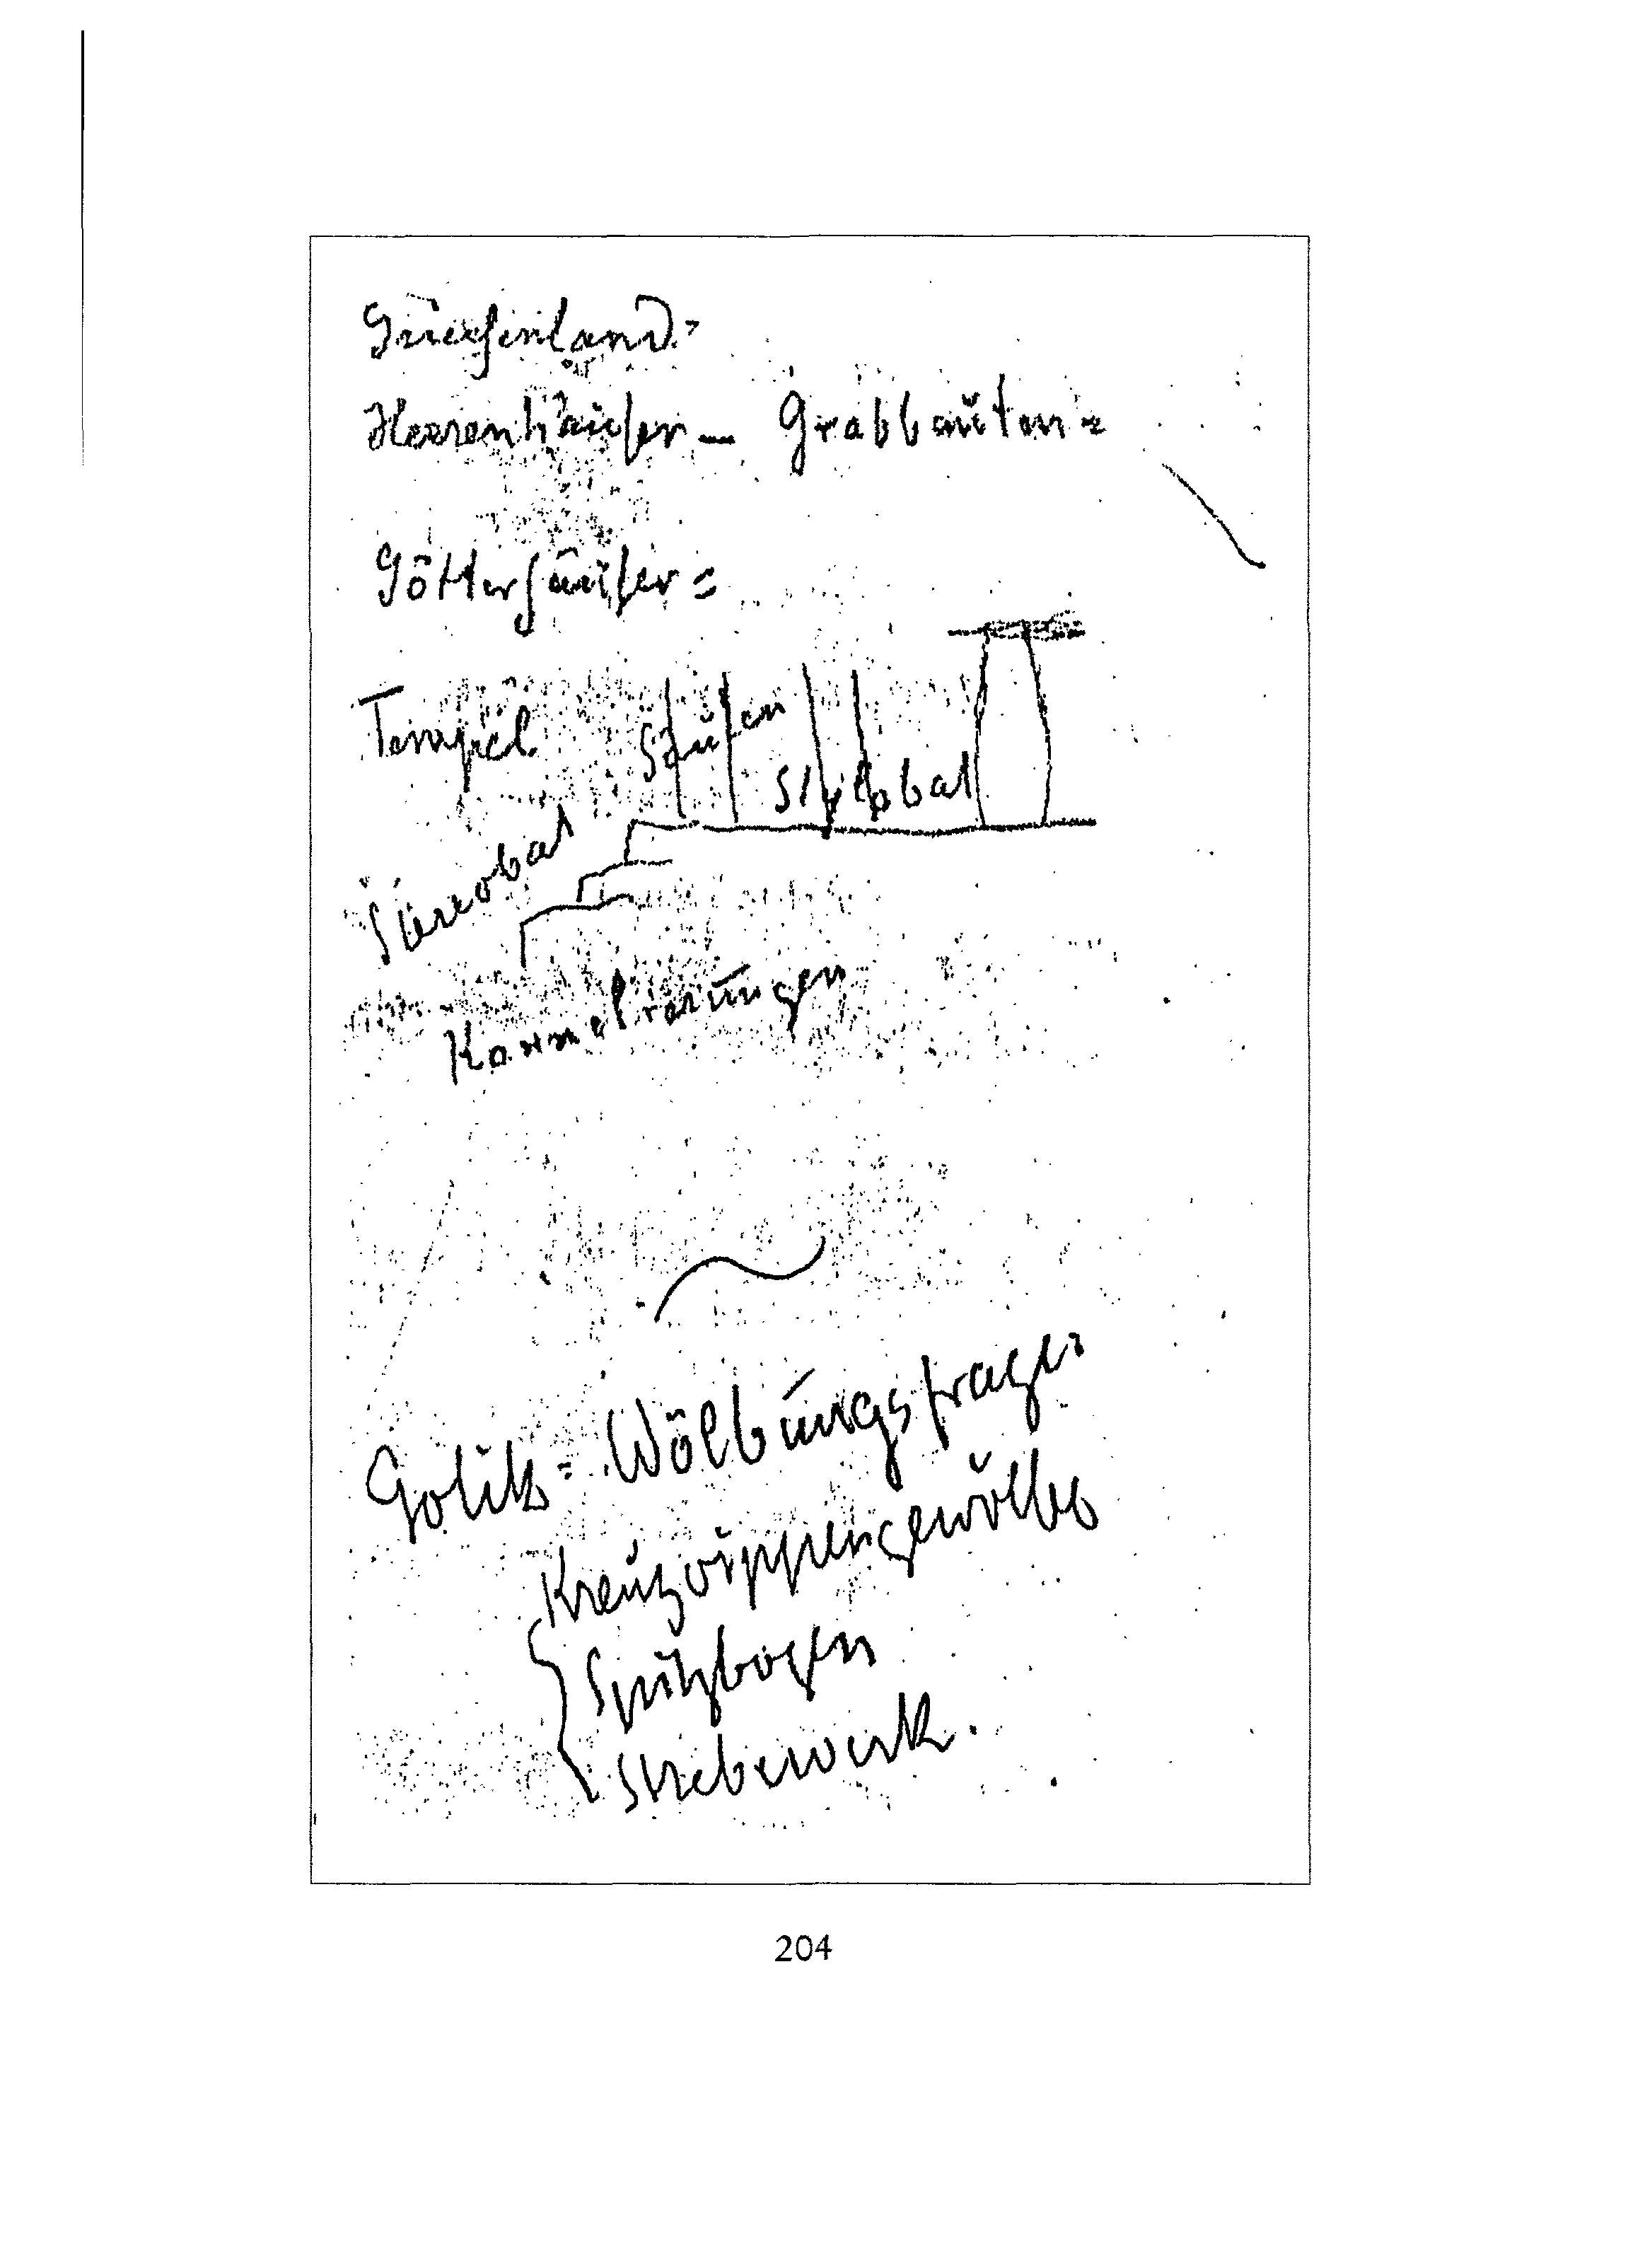 Griechenland:
Herrenhäuser – Grabbauten =
Götterhäuser =
Tempel Stufen
Stylobat
Stereobat
Kannelierungen
Gotik = Wölbungsfrage:
Kreuzrippengewölbe
Spitzbogen
Strebewerk.
204